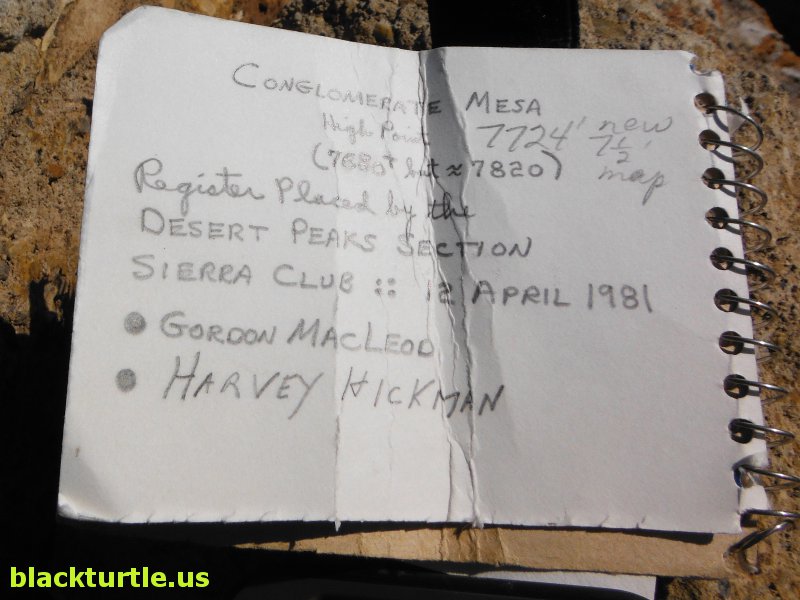 CONGLOMERATE MESA
High Point 7724' new
(7680+ but ≈ 7820) 7½' map
Register Placed by the
DESERT PEAKS SECTION
SIERRA CLUB :: 12 APRIL 1981
• GORDON MACLEOD
• HARVEY HICKMAN
blackturtle.us